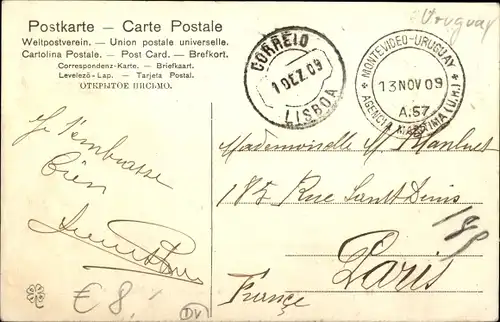 Uruguay
Postkarte - Carte Postale
Weltpostverein. - Union postale universelle.
Cartolina Postale. - Post Card. - Brefkort.
Correspondenz-Karte. - Briefkaart.
Levelező-Lap. - Tarjeta Postal.
ОТКРЫТОЕ ПИСЬМО.
CORREIO
1 DEZ 09
LISBOA
MONTEVIDEO-URUGUAY
13 NOV 09
A.57
AGENCIA MARITIMA (U.H.)
Je t'embrasse
bien
Mademoiselle M
185 Rue Saint Denis
Paris
France
€ 8,-
DV